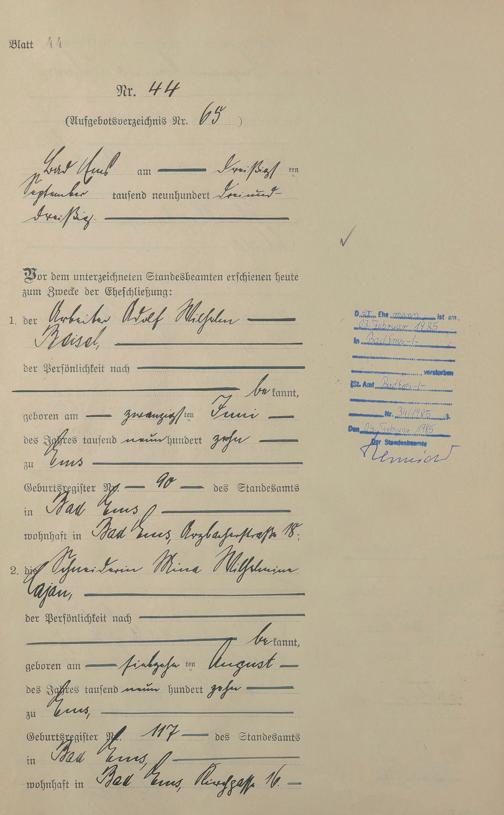 Blatt 44
Nr. 44
(Aufgebotsverzeichnis Nr. 65 )
Bad Ems am dreißigsten
September tausend neunhundert dreiund-
dreißig.
Vor dem unterzeichneten Standesbeamten erschienen heute
zum Zwecke der Eheschließung:
1. der Arbeiter Adolf Wilhelm
der Persönlichkeit nach
bekannt,
geboren am zwanzigsten Juni
des Jahres tausend neunhundert zehn
zu Ems
Geburtsregister Nr. 90 des Standesamts
in Bad Ems,
wohnhaft in Bad Ems Arzbacherstraße 18;
2. die Schneiderin Mina Wilhelmine
Cajan,
der Persönlichkeit nach
bekannt,
geboren am siebzehnten August
des Jahres tausend neun hundert zehn
zu Ems,
Geburtsregister Nr. 117 des Standesamts
in Bad Ems,
wohnhaft in Bad Ems, Kirchgasse 16.
Der Ehemann ist am
Februar 1985
in Bad Ems
verstorben
St. Amt Bad Ems
Nr. 34/1985
Den Februar 1985
Der Standesbeamte